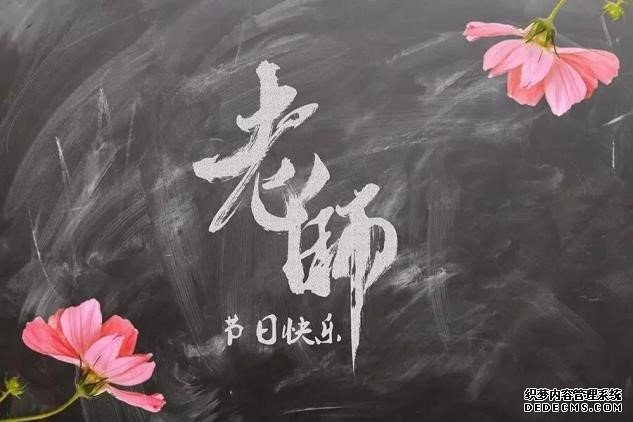 老师
节日快乐
织梦内容管理系统
DEDECMS.COM